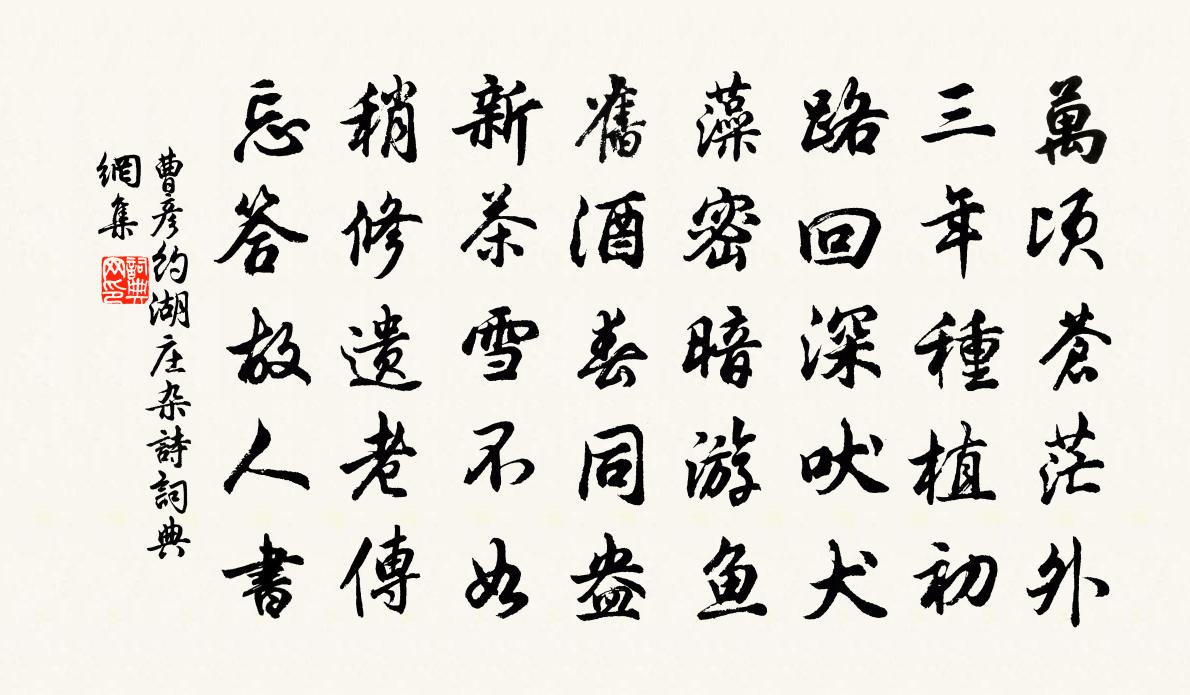 萬頃蒼茫外
三年種植初
路回深吠犬
藻密暗游鱼
舊酒春同盎
新茶雪不如
稍修遗老傳
忘答故人書
曹彦約湖庄杂詩詞典
網集
詞典
网印